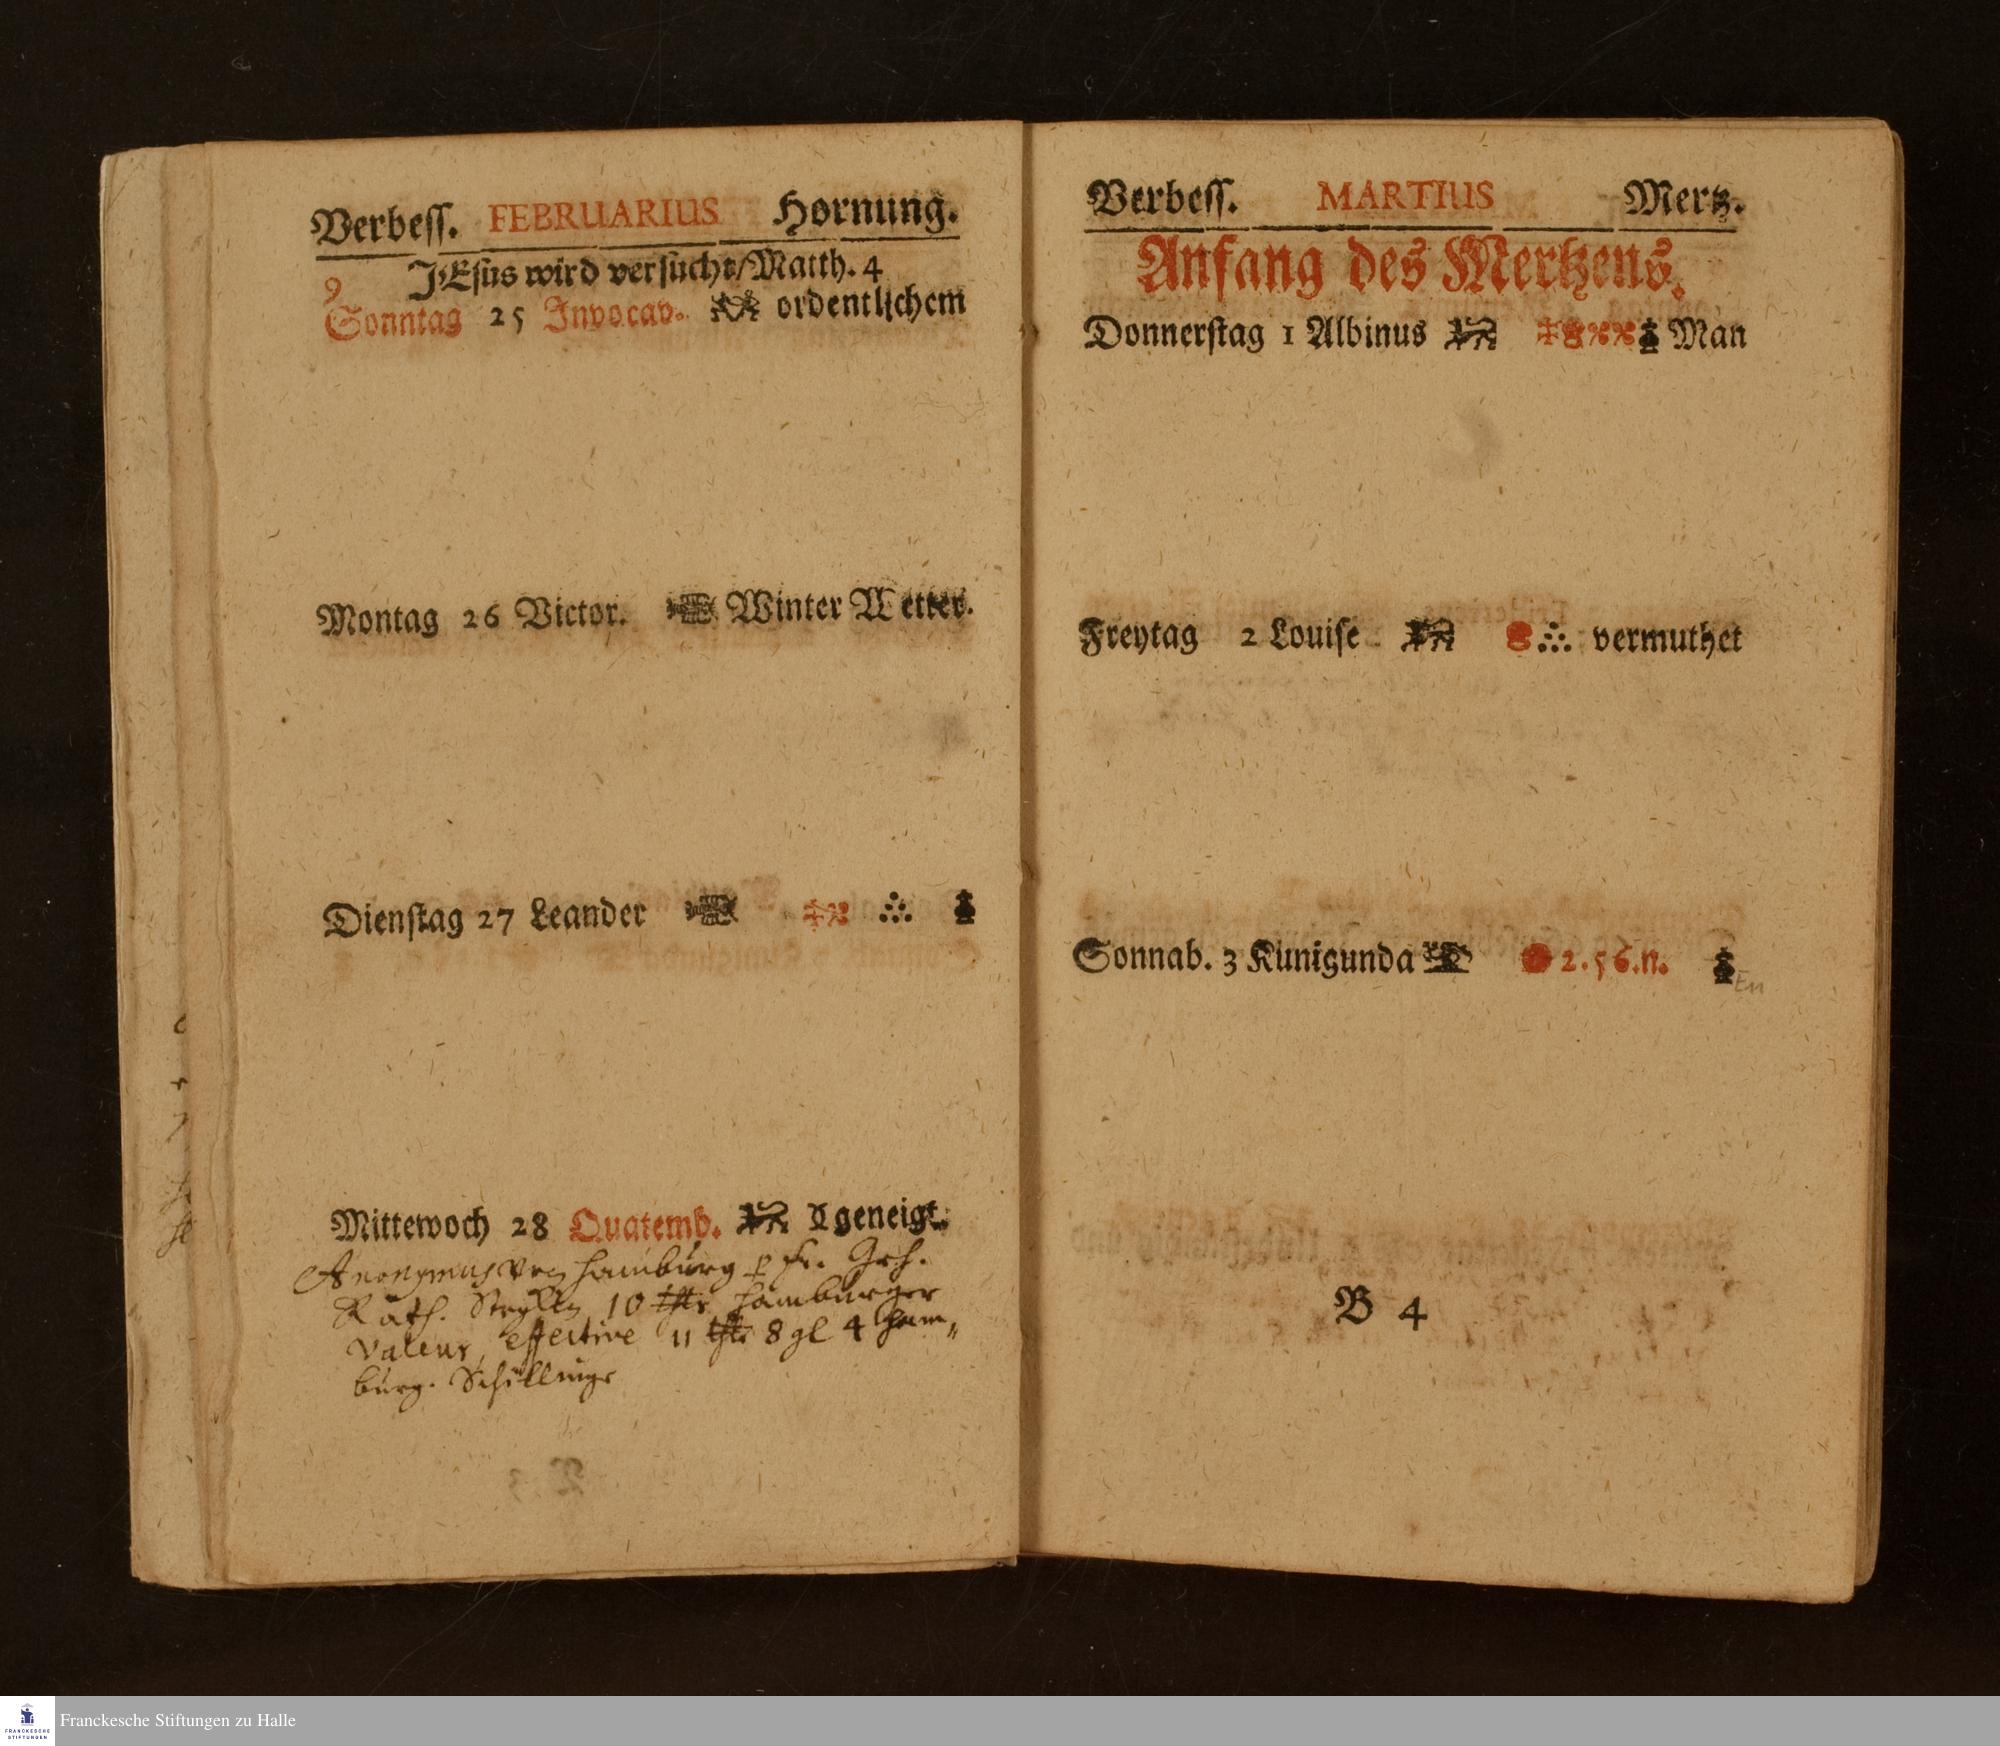 Verbess. FEBRUARIUS Hornung.
JEsus wird versucht/Matth. 4
9
Sonntag 25 Invocav. ordentlichem
Montag 26 Victor. Winter Wetter.
Dienstag 27 Leander
Mittewoch 28 Quatemb. geneigt.
Anonymus von Hamburg Fr.
Rath. 10 thr Hamburger
Valeur, effective 11 thr 8 gl 4 Ham„
burg. Schillinge
Verbess. MARTIUS Mertz.
Anfang des Mertzens.
Donnerstag 1 Albinus Man
Freytag 2 Louise vermuthet
Sonnab. 3 Kunigunda 2.56.n.
En
B 4
Franckesche Stiftungen zu Halle
FRANCKESCHE
STIFTUNGEN